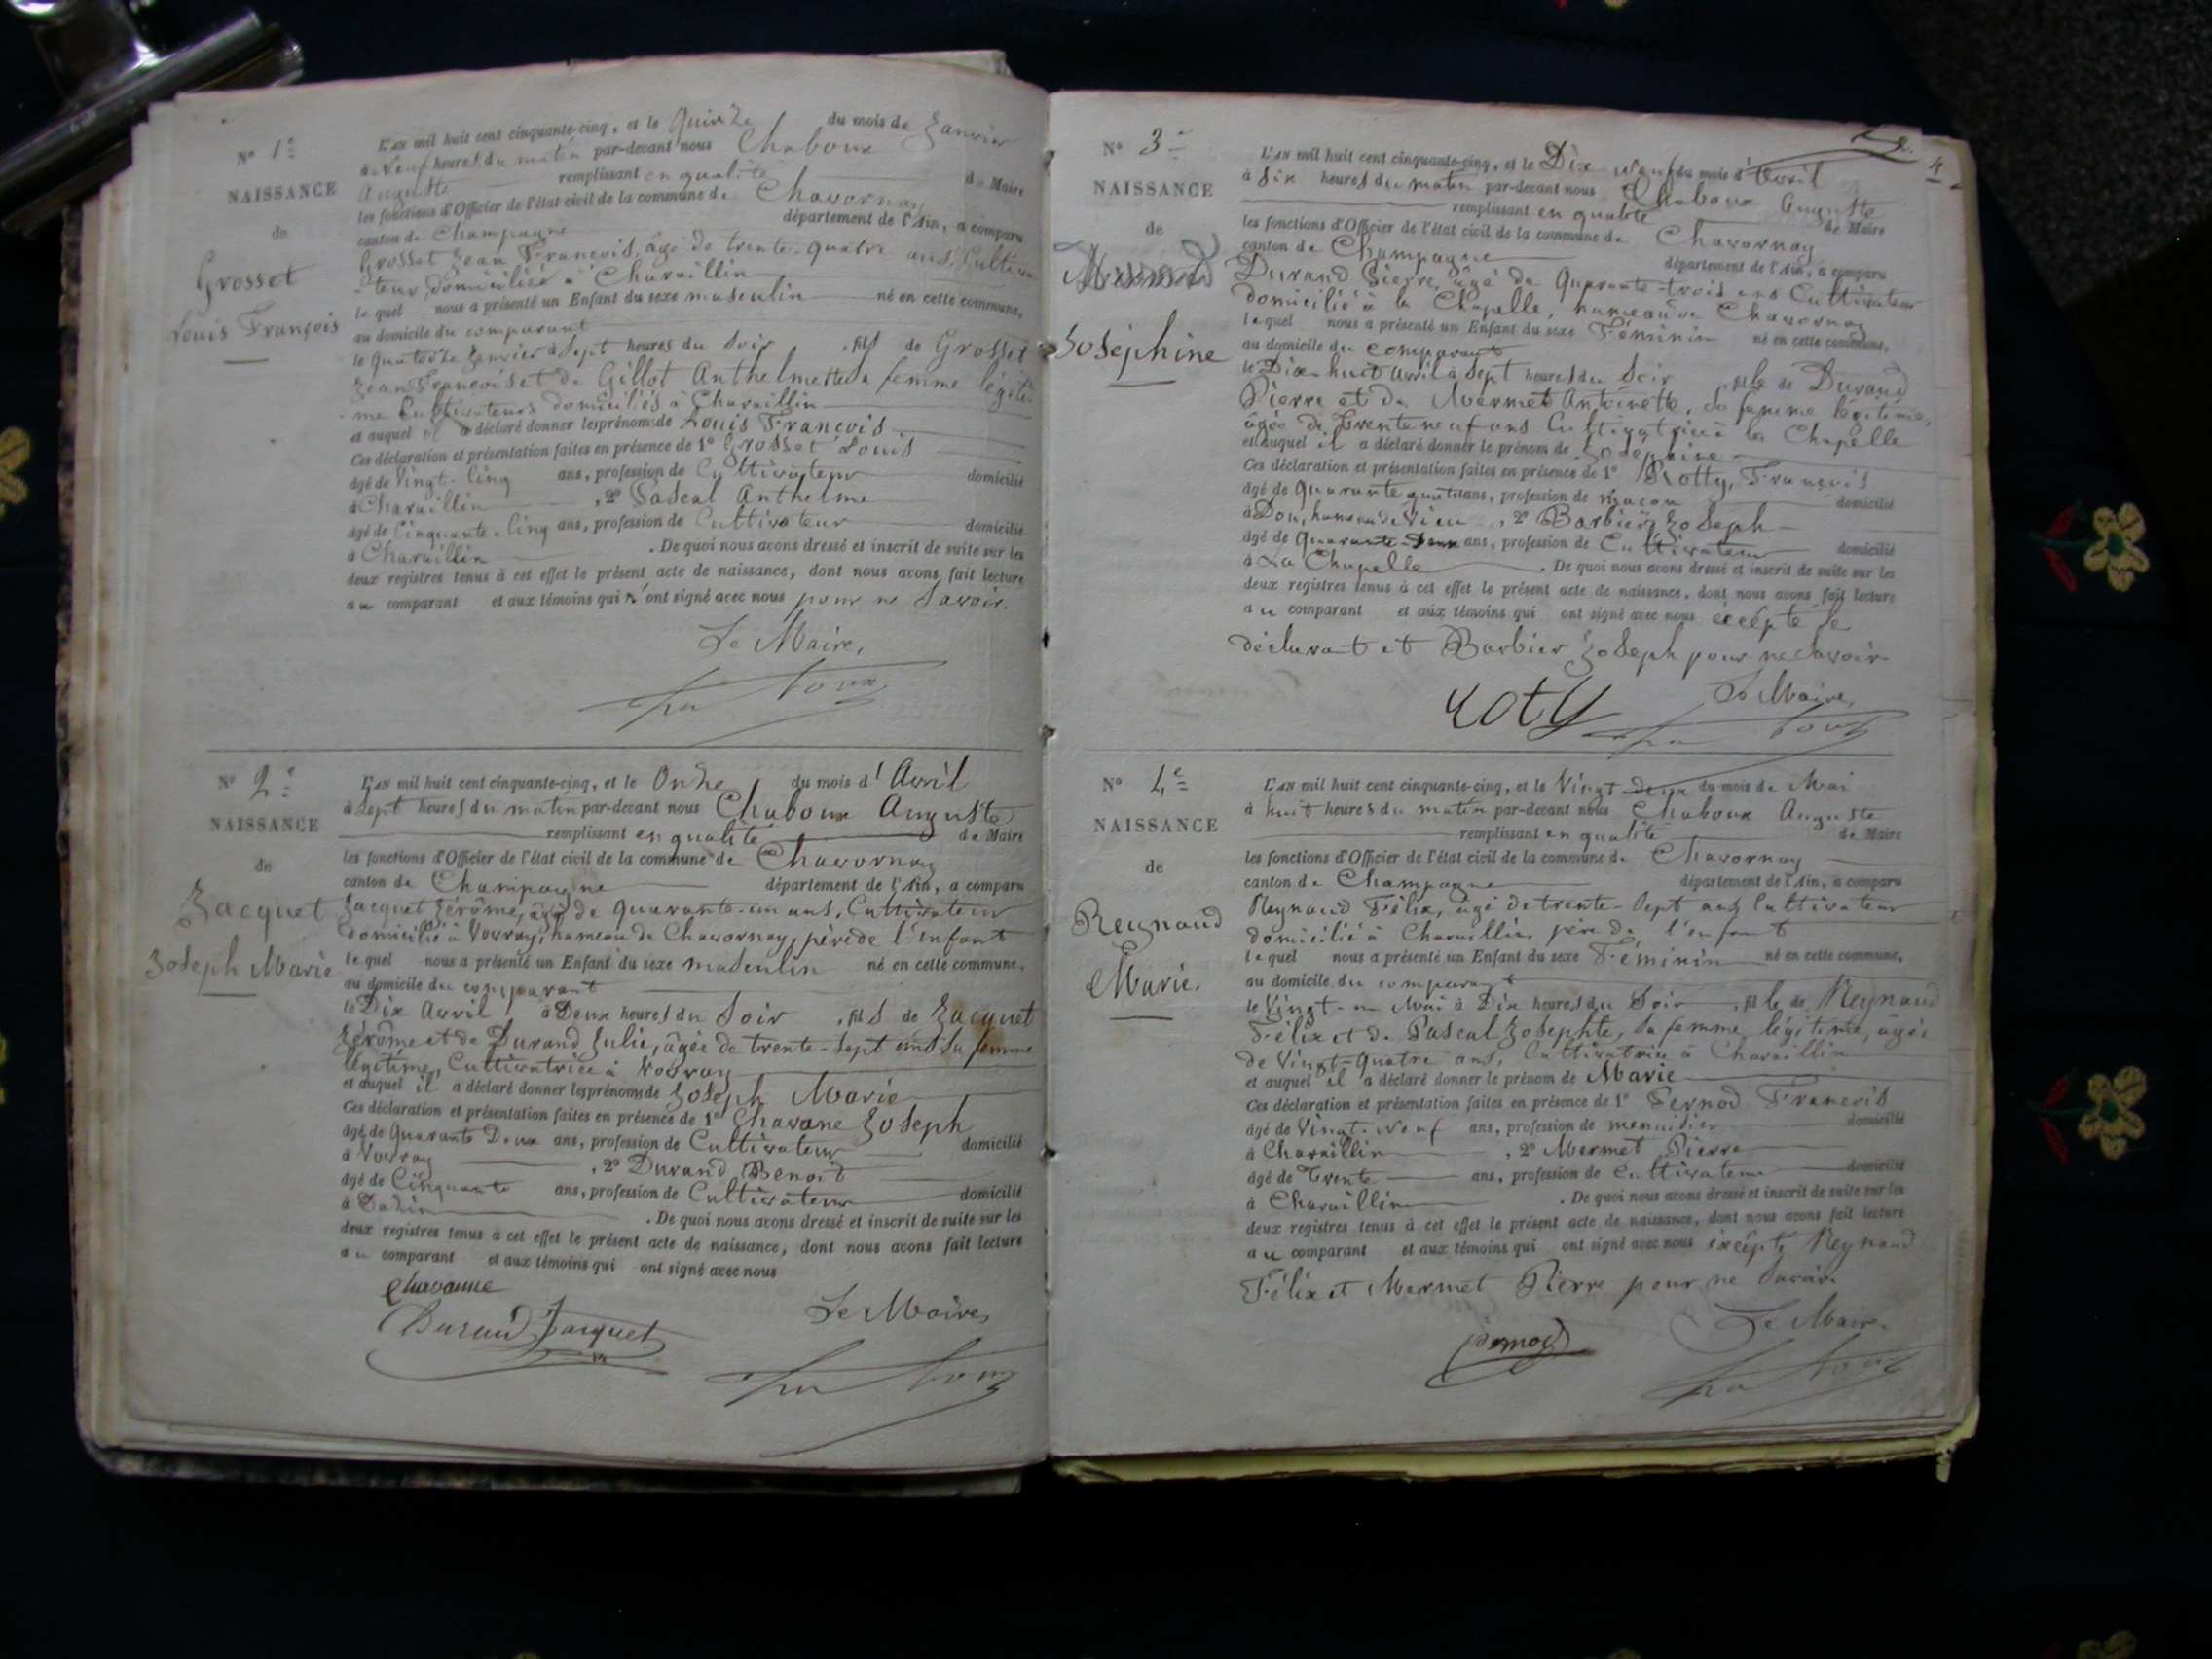 N° 1e
NAISSANCE
de
Grosset
Louis François
L'an mil huit cent cinquante-cinq, et le Quinze du mois de Janvier
à Neuf heures du matin par-devant nous Chaboux
Auguste remplissant en qualité de Maire
les fonctions d'Officier de l'état civil de la commune de Chavornay
canton de Champagne département de l'Ain, a comparu
Grosset Jean François, âgé de trente-quatre ans, Cultiva
-teur, domicilié à Charaillin
lequel nous a présenté un Enfant du sexe masculin né en cette commune,
au domicile du comparant
le Quatorze Janvier à Sept heures du Soir, fils de Grosset
Jean François et de Gillot Anthelmette sa femme légiti-
-me Cultivateurs domiciliés à Charaillin
et auquel il a déclaré donner les prénoms de Louis François
Ces déclaration et présentation faites en présence de 1° Grosset Louis
âgé de Vingt-Cinq ans, profession de Cultivateur domicilié
à Charaillin, 2° Pascal Anthelme
âgé de Cinquante-Cinq ans, profession de Cultivateur domicilié
à Charaillin. De quoi nous avons dressé et inscrit de suite sur les
deux registres tenus à cet effet le présent acte de naissance, dont nous avons fait lecture
au comparant et aux témoins qui n'ont signé avec nous pour ne Savoir.
Le Maire,
N° 2e
NAISSANCE
de
Jacquet
Joseph Marie
L'an mil huit cent cinquante-cinq, et le Onze du mois d'Avril
à Sept heures du matin par-devant nous Chaboux Auguste
remplissant en qualité de Maire
les fonctions d'Officier de l'état civil de la commune de Chavornay
canton de Champagne département de l'Ain, a comparu
Jacquet Jérôme, âgé de Quarante-un ans, Cultivateur
domicilié à Vovray, hameau de Chavornay, père de l'enfant
lequel nous a présenté un Enfant du sexe masculin né en cette commune,
au domicile du comparant
le Dix Avril à Deux heures du Soir, fils de Jacquet
Jérôme et de Durand Julie, âgée de trente-sept ans sa femme
légitime, Cultivatrice à Vovray
et auquel il a déclaré donner les prénoms de Joseph Marie
Ces déclaration et présentation faites en présence de 1° Chavane Joseph
âgé de Quarante Deux ans, profession de Cultivateur domicilié
à Vovray, 2° Durand Benoit
âgé de Cinquante ans, profession de Cultivateur domicilié
à . De quoi nous avons dressé et inscrit de suite sur les
deux registres tenus à cet effet le présent acte de naissance, dont nous avons fait lecture
au comparant et aux témoins qui ont signé avec nous
Chavanne
Durand Jacquet
Le Maire,
4
N° 3e
NAISSANCE
de
Joséphine
L'an mil huit cent cinquante-cinq, et le Dix neuf du mois d'Avril
à Six heures du matin par-devant nous Chaboux Auguste
remplissant en qualité de Maire
les fonctions d'Officier de l'état civil de la commune de Chavornay
canton de Champagne département de l'Ain, a comparu
Durand Pierre, âgé de Quarante-trois ans Cultivateur
domicilié à la Chapelle, hameau de Chavornay
lequel nous a présenté un Enfant du sexe Féminin né en cette commune,
au domicile du comparant
le Dix-huit Avril à Sept heures du Soir, fille de Durand
Pierre et de Mermet Antoinette, sa femme légitime,
âgée de Trente neuf ans Cultivatrice à la Chapelle
et auquel il a déclaré donner le prénom de Joséphine
Ces déclaration et présentation faites en présence de 1° Rotty, François
âgé de Quarante quatre ans, profession de maçon domicilié
à Don, hameau de Vieu, 2° Barbier Joseph
âgé de Quarante-Deux ans, profession de Cultivateur domicilié
à La Chapelle. De quoi nous avons dressé et inscrit de suite sur les
deux registres tenus à cet effet le présent acte de naissance, dont nous avons fait lecture
au comparant et aux témoins qui ont signé avec nous éxcépté le
déclarant et Barbier Joseph pour ne Savoir
Le Maire,
roty
N° 4e
NAISSANCE
de
Reynaud
Marie.
L'an mil huit cent cinquante-cinq, et le Vingt-deux du mois de Mai
à huit heures du matin par-devant nous Chaboux Auguste
remplissant en qualité de Maire
les fonctions d'Officier de l'état civil de la commune de Chavornay
canton de Champagne département de l'Ain, a comparu
Reynaud Félix, âgé de trente-Sept ans Cultivateur
domicilié à Charaillin père de l'enfant
lequel nous a présenté un Enfant du sexe Féminin né en cette commune,
au domicile du comparant
le Vingt-un Mai à Dix heures du Soir, fille de Reynaud
Félix et de Pascal Josephte, sa femme légitime, âgée
de Vingt-Quatre ans, Cultivatrice à Charaillin
et auquel il a déclaré donner le prénom de Marie
Ces déclaration et présentation faites en présence de 1° Pernod François
âgé de Vingt-Neuf ans, profession de menuisier domicilié
à Charaillin, 2° Mermet Pierre
âgé de Trente ans, profession de Cultivateur domicilié
à Charaillin. De quoi nous avons dressé et inscrit de suite sur les
deux registres tenus à cet effet le présent acte de naissance, dont nous avons fait lecture
au comparant et aux témoins qui ont signé avec nous éxcépté Reynaud
Félix et Mermet Pierre pour ne Savoir.
Le Maire.
pernod